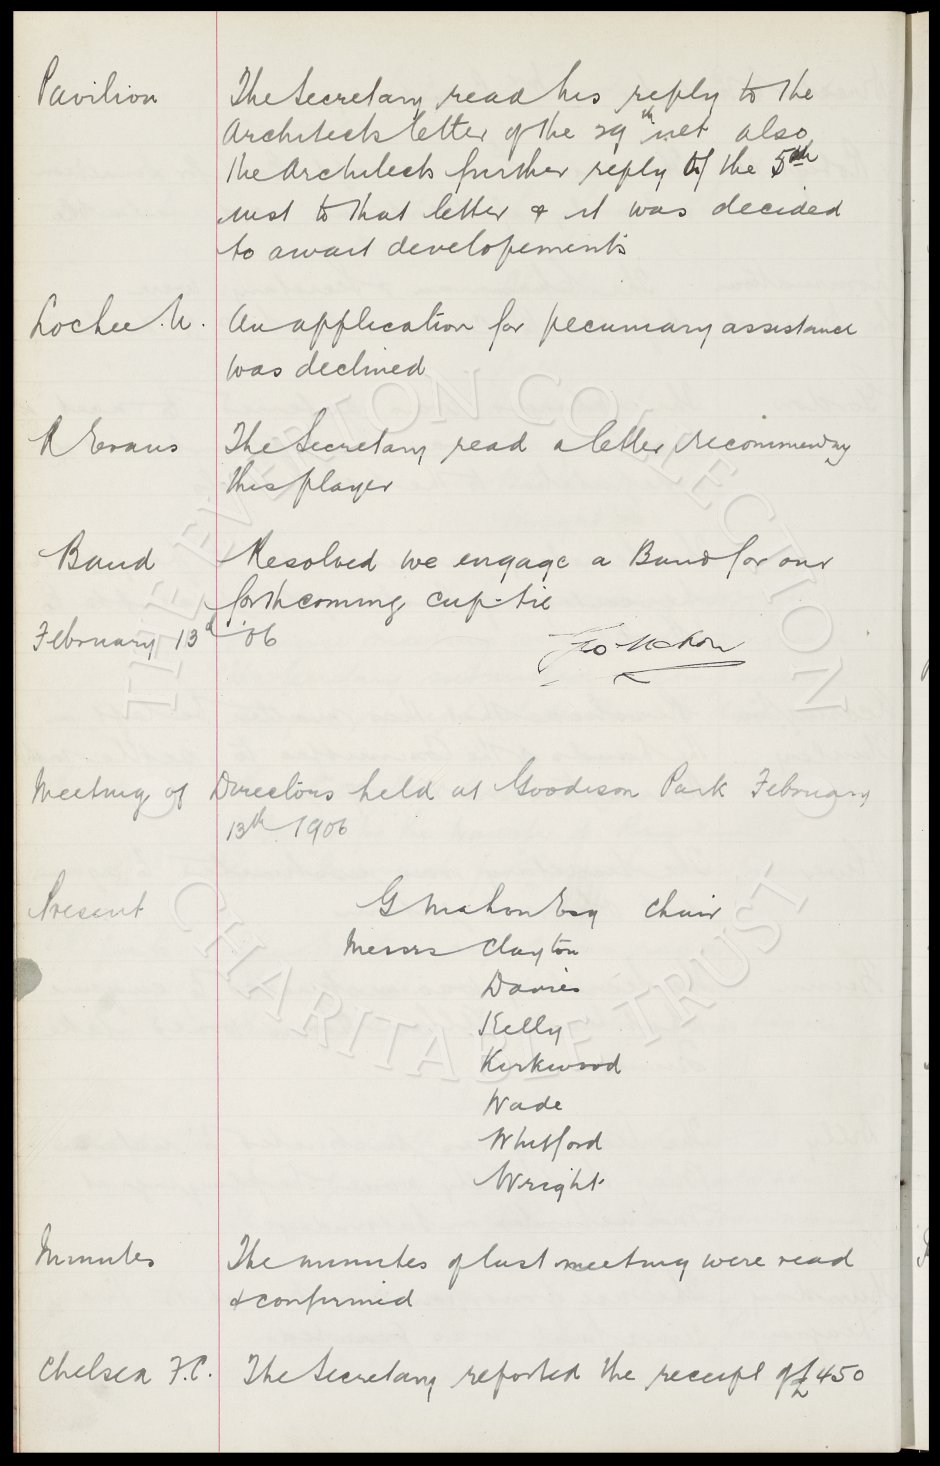 Pavilion The Secretary read his reply to the
Architects letter of the 29th ult also
the Architects further reply of the 5th
inst to that letter & it was decided
to await developements
Lochee U. An application for pecuniary assistance
was declined
R Evans The Secretary read a letter recommending
this player
Band Resolved we engage a Band for our
forthcoming cup-tie
February 13th '06 Geo Mahon
Meeting of Directors held at Goodison Park February
13th 1906
Present G Mahon Esq Chair
Messrs Clayton
Davies
Kelly
Kirkwood
Wade
Whitford
Wright
Minutes The minutes of last meeting were read
& confirmed
Chelsea F.C. The Secretary reported the receipt of £450
THE EVERTON COLLECTION
CHARITABLE TRUST